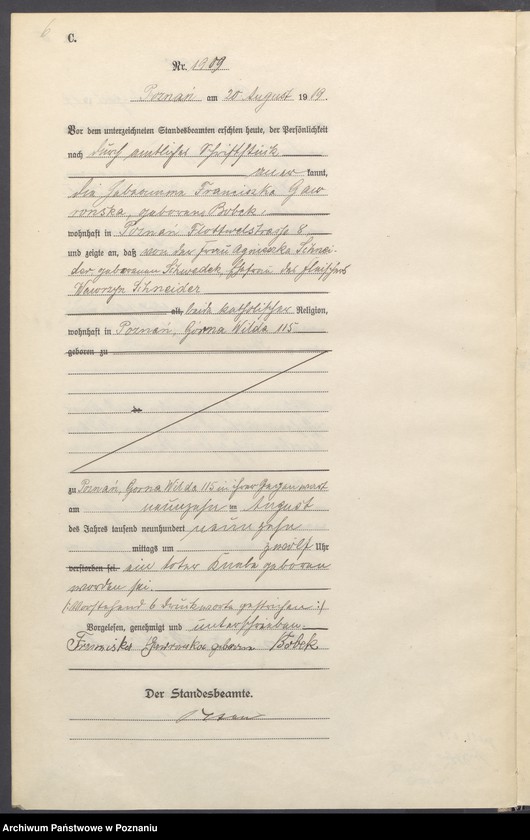 6
C.
Nr. 1909
Poznań am 20 August 1919.
Vor dem unterzeichneten Standesbeamten erschien heute, der Persönlichkeit
nach durch amtliches Schriftstück
aner kannt,
die Hebeamme Franciszka Gaw
ronska, geborene Bobek.
wohnhaft in Poznań Flottwelstrasse 8.
und zeigte an, daß von der Frau Agnieszka Schnei-
der geborenen Schwedek, Ehefrau des Fleischers
Wawrzyn Schneider
alt, beide katholischer Religion,
wohnhaft in Poznań, Górna Wilda 115
geboren zu
de
zu Poznań, Gorna Wilda 115 in ihrer Gegenwart
am neunzehn ten August
des Jahres tausend neunhundert neunzehn
mittags um zwölf Uhr
verstorben sei. ein toter Knabe geboren
worden sei.
/:Vorstehend 6 Druckworte gestrichen:/
Vorgelesen, genehmigt und unterschrieben.
Franciska Gawronska geborene Bobek
Der Standesbeamte.
Archiwum Państwowe w Poznaniu